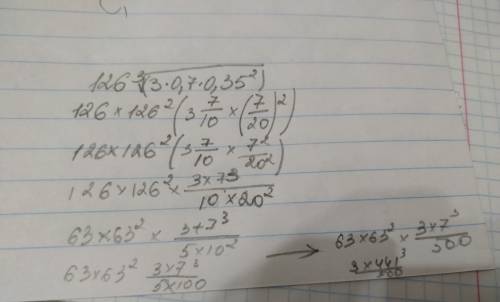 126³√(3·0,7·0,35²)
126×126²(3 7/10 × (7/20)²)
126×126²(3 7/10 × 7²/20²)
126×126² × 3×73/10×20²
63×63² × 3+7³/5×10²
63×63² 3×7³/5×100
→ 63×63² × 3×7³/500
3×441³/500